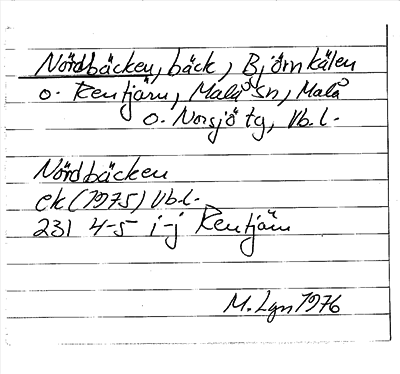 Nördbäcken, bäck, Björnkälen
o. Rentjärn, Malå sn, Malå
o. Norsjö tg, Vb.l.
Nördbäcken
ek (1975) Vb.l.
231 4-5 i-j Rentjärn
M. Lgn 1976